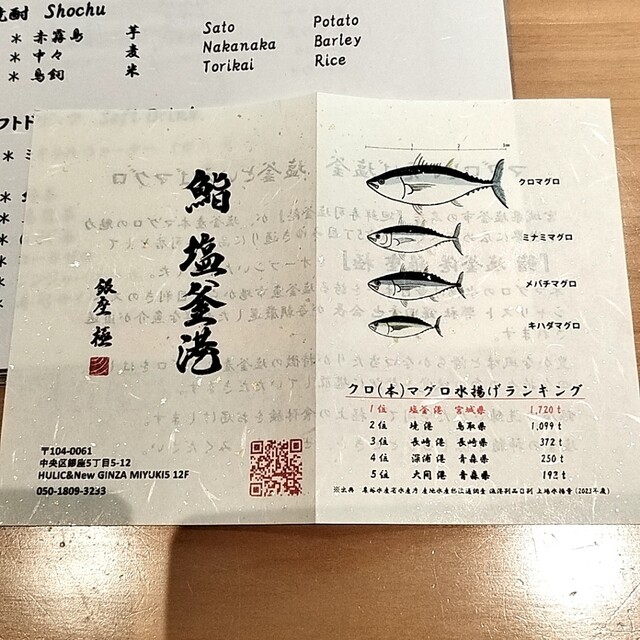 焼酎 Shochu
＊ 赤霧島 芋 Sato Potato
＊ 中々 麦 Nakanaka Barley
＊ 鳥飼 米 Torikai Rice
鮨 塩釜港
銀座 極
〒104-0061
中央区銀座5丁目5-12
HULIC&New GINZA MIYUKI5 12F
050-1809-3233
クロマグロ
ミナミマグロ
メバチマグロ
キハダマグロ
クロ(本)マグロ水揚げランキング
1位 塩釜港 宮城県 1,720 t
2位 境港 鳥取県 1,099 t
3位 長崎港 長崎県 372 t
4位 深浦港 青森県 250 t
5位 大間港 青森県 192 t
※出典
(2023年度)